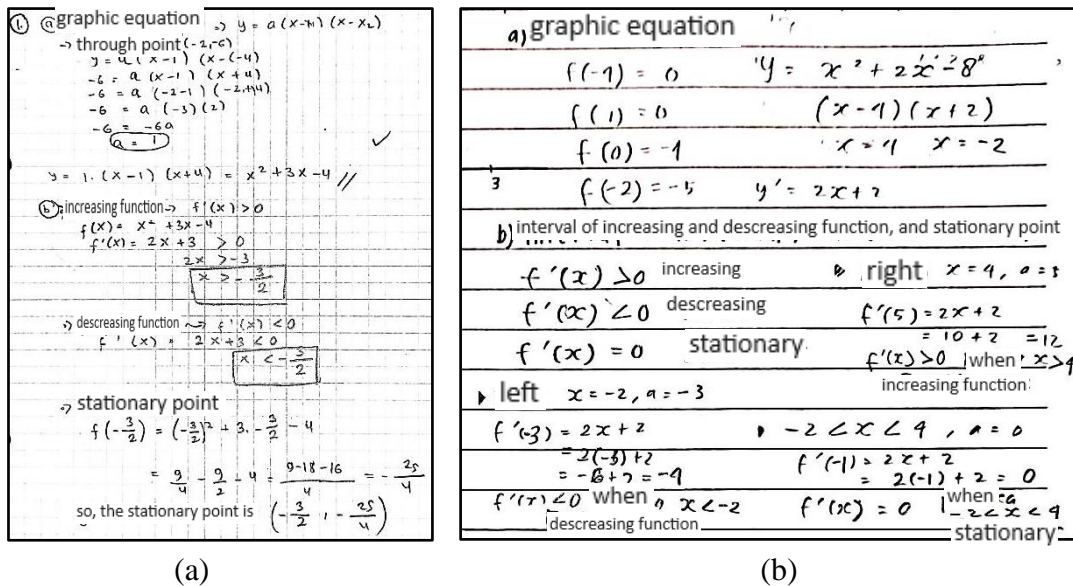 1. a graphic equation => y = a(x-x1)(x-x2)
-> through point (-2,-6)
y = a(x-1)(x-(-4)
-6 = a(x-1)(x+4)
-6 = a(-2-1)(-2+4)
-6 = a(-3)(2)
-6 = -6a
a = 1
y = 1.(x-1)(x+4) = x² + 3x - 4 //
b. increasing function -> f'(x) > 0
f(x) = x² + 3x - 4
f'(x) = 2x + 3 > 0
2x > -3
x > -3/2
descreasing function ~> f'(x) < 0
f'(x) = 2x + 3 < 0
x < -3/2
-> stationary point
f(-3/2) = (-3/2)² + 3. -3/2 - 4
= 9/4 - 9/2 - 4 = 9-18-16/4 = -25/4
so, the stationary point is (-3/2, -25/4)
(a)
a) graphic equation y'
f(-4) = 0 y = x² + 2x - 8
f(1) = 0 (x-4)(x+2)
f(0) = -4 x = 4 x = -2
3 f(-2) = -5 y' = 2x+2
b) interval of increasing and descreasing function, and stationary point
f'(x) > 0 increasing
f'(x) < 0 descreasing
f'(x) = 0 stationary
right x = 4, a = 5
f'(5) = 2x + 2
= 10 + 2 = 12
f'(x) > 0 when x > 4
increasing function
left x = -2, a = -3
f'(-3) = 2x + 2
= 2(-3) + 2
= -6 + 2 = -4
f'(x) < 0 when x < -2
descreasing function
-2 < x < 4, a = 0
f'(-1) = 2x + 2
= 2(-1) + 2 = 0
f'(x) = 0 when
-2 < x < 4
stationary
(b)